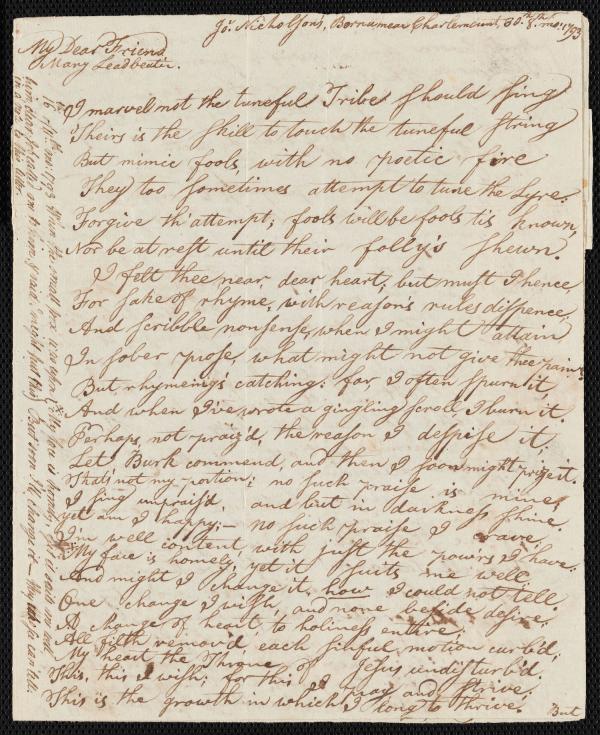 Jos. Nicholson's, Bornamean Charlemount, 30th. 8. mo: 1793
My Dear Friend
Mary Leadbeater.
I marvel not the tuneful Tribe should sing
Theirs is the skill to touch the tuneful string
But mimic fools, with no poetic fire
They too sometimes attempt to tune the Lyre:
Forgive th' attempt; fools will be fools tis known,
Nor be at rest until their folly's shewn.
I felt thee near, dear heart; but must I hence,
For sake of rhyme, with reason's rules dispence,
And scribble nonsense, when I might attain
In sober prose, what might not give thee pain:
But rhymeing's catching: far, I often spurn it,
And when I've wrote a gingling scroll, I burn it.
Perhaps, not prais'd, the reason I despise it,
Let Burk commend, and then I soon might prize it.
Thats not my portion; no such praise is mine,
I sing unprais'd, and but in darkness shine,
yet am I happy;— no such praise I crave,
I'm well content with just the pow'rs I have.
My face is homely, yet it suits me well,
And might I change it, how I could not tell
One change I wish, and none beside desire,
A change of heart, to holiness entire
All filth remov'd, each sinful motion curb'd;
My heart the Throne of Jesus undisturb'd.
This, this I wish: for this I pray and strive:
This is the growth in which I long to thrive.
But
16 1793 When the small
in a to this letter.